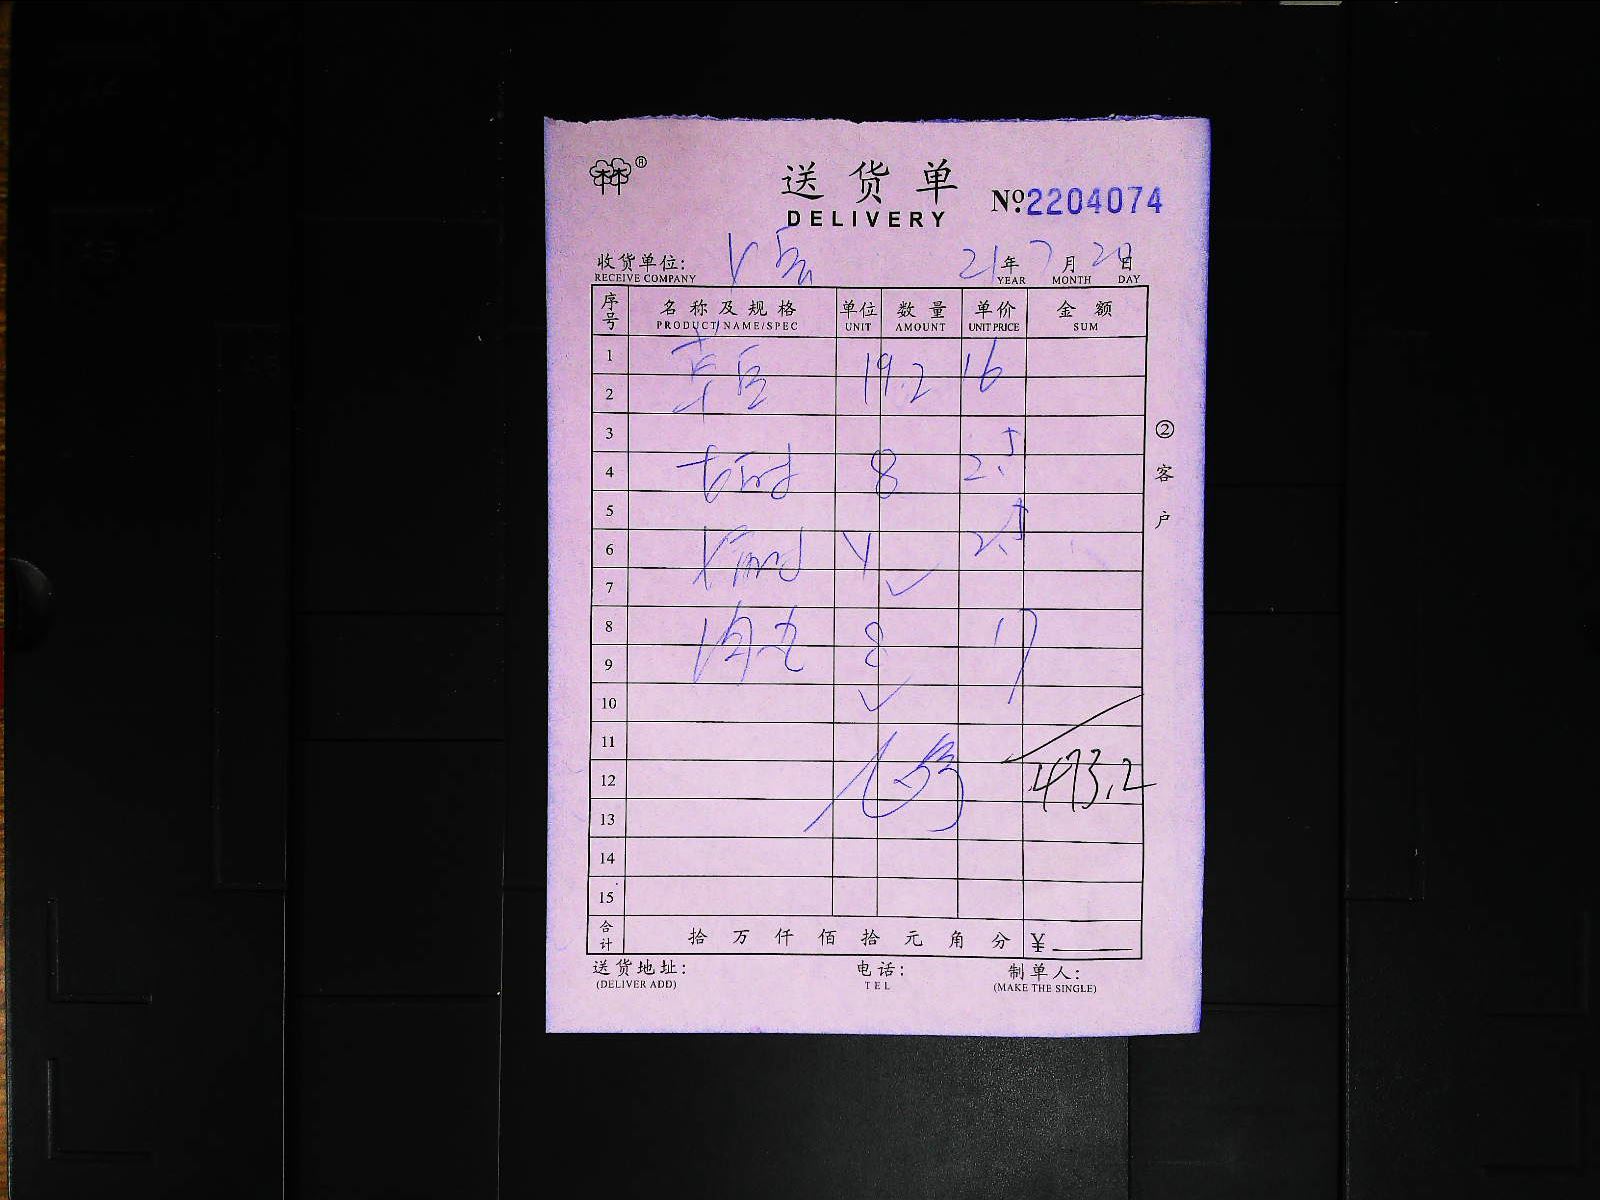 送货单
DELIVERY
№ 2204074
收货单位: 21年7月20日
RECEIVE COMPANY YEAR MONTH DAY
序号 名称及规格 单位 数量 单价 金额
PRODUCT NAME/SPEC UNIT AMOUNT UNIT PRICE SUM
1 19.2 16
2
3
4 8 2.5
5
6 2.5
7
8 8 17
9
10
11
12 493.2
13
14
15
合计 拾 万 仟 佰 拾 元 角 分 ¥
送货地址: 电话: 制单人:
(DELIVER ADD) TEL (MAKE THE SINGLE)
②客户